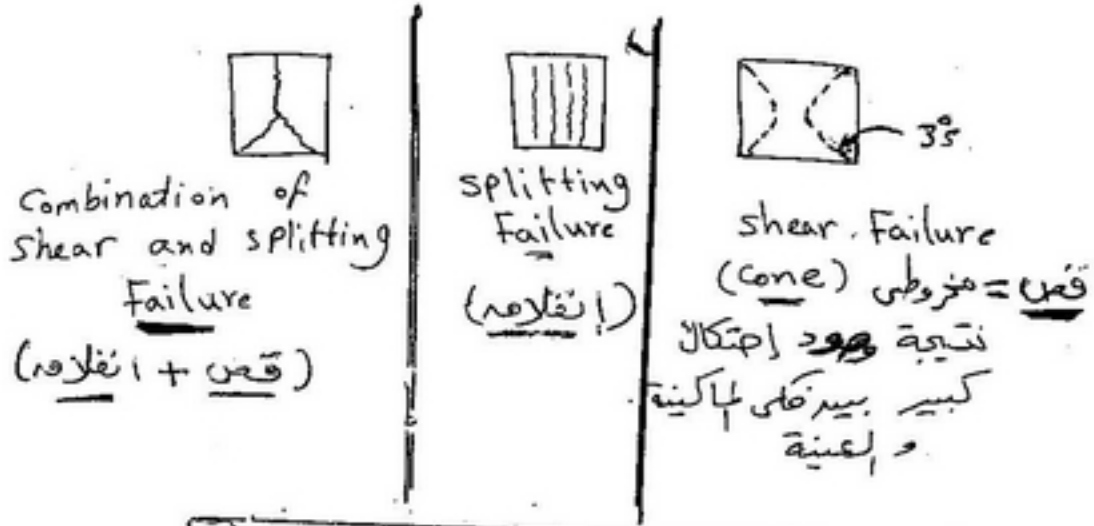 Combination of
shear and splitting
Failure
(قص + انفلاق)
splitting
Failure
(إنفلاق)
35°
shear Failure
قص = مخروطى (Cone)
نتيجة وجود إحتكاك
كبير بين فكى الماكينة
و العينة